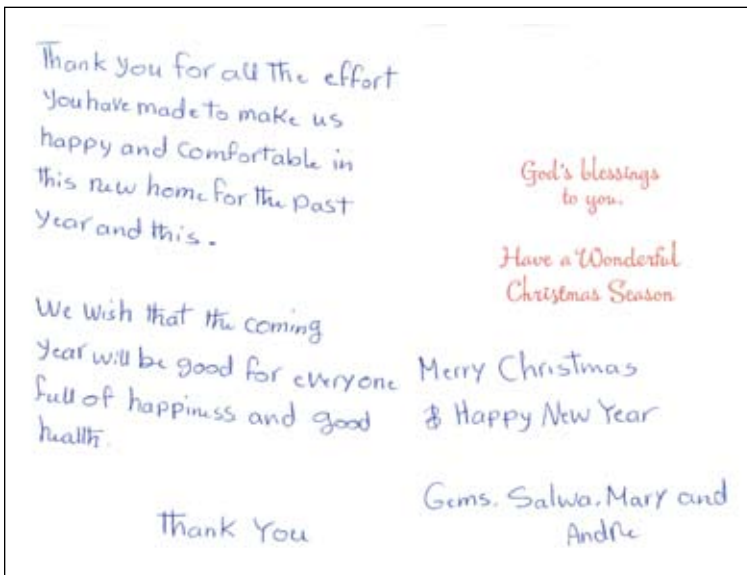 Thank you for all the effort
you have made to make us
happy and comfortable in
this new home for the past
year and this.
We wish that the coming
year will be good for everyone
full of happiness and good
health.
Thank You
God's blessings
to you.
Have a Wonderful
Christmas Season
Merry Christmas
& Happy New Year
Gems, Salwa, Mary and
Andre